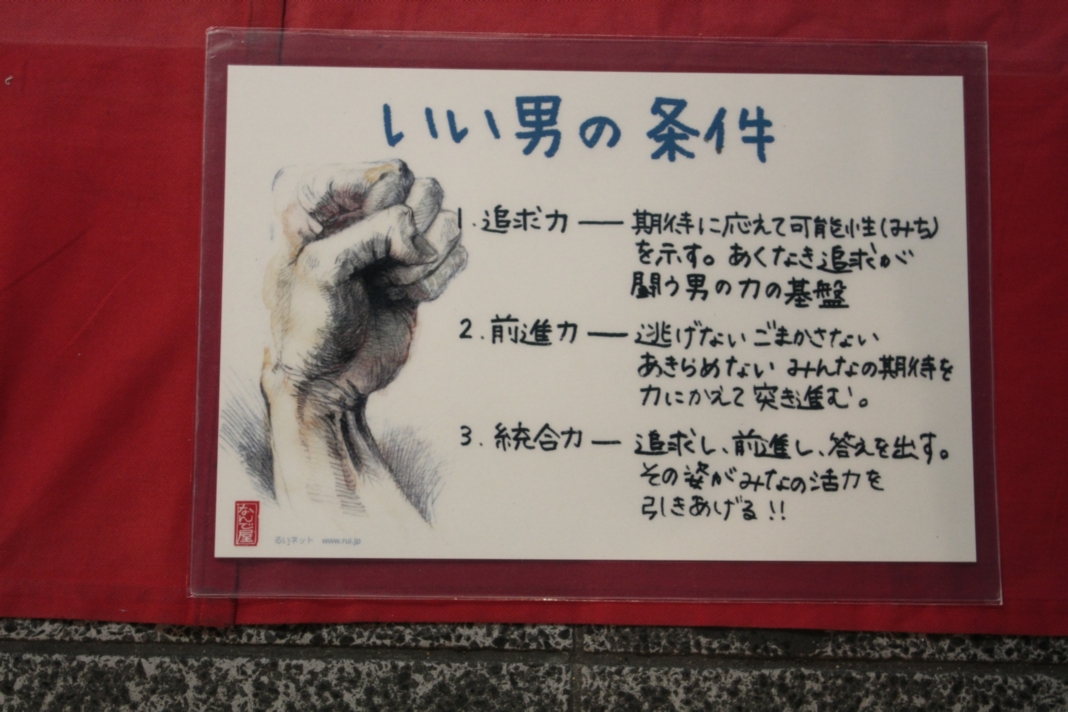 いい男の条件
1. 追求力 ― 期待に応えて可能性(みち)
を示す。あくなき追求が
闘う男の力の基盤
2. 前進力 ― 逃げない ごまかさない
あきらめない みんなの期待を
力にかえて 突き進む。
3. 統合力 ― 追求し、前進し、答えを出す。
その姿がみなの活力を
引きあげる!!
なんで屋
るいネット www.rui.jp